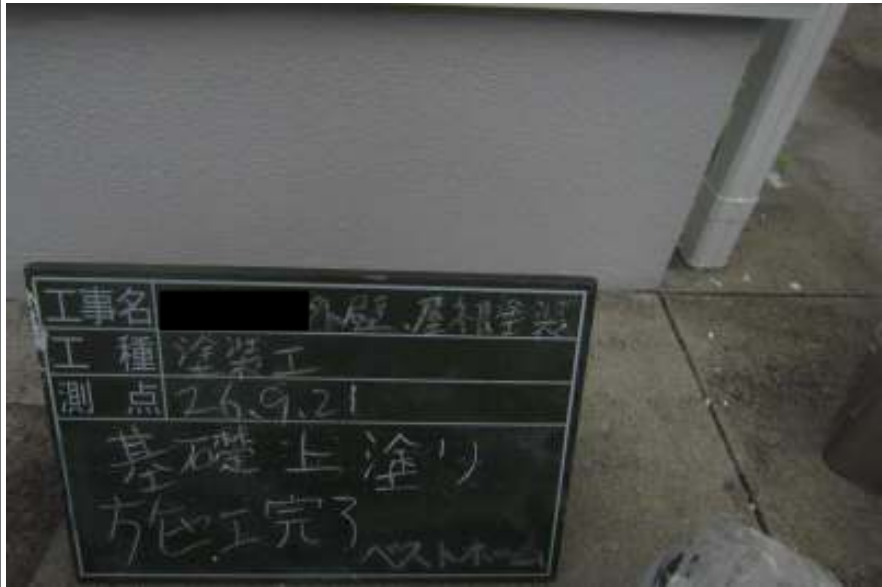 工事名 外壁、屋根塗装
工種 塗装工
測点 26.9.21
基礎上塗り
施工完了
ベストホーム